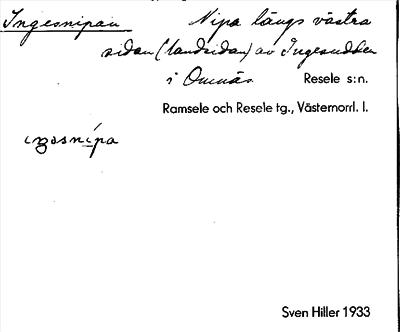 Ingesnipan Nipa längs västra
sidan (landsidan) av Ingesudden
i Omnäs. Resele s:n.
Ramsele och Resele tg., Västernorrl. l.
ıŋəsnípa
Sven Hiller 1933